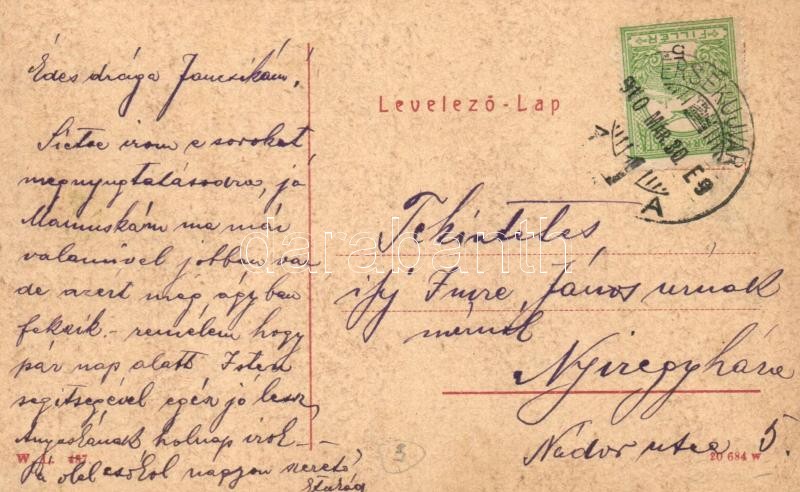 Édes drága Jancsikám,
Sietve irom e sorokat
megnyugtatásodra, jó
Mamuskám ma már
valamivel jobban va
de azért még ágyban
fekszik. - remélem hogy
pár nap alatt Isten
segitségével egész jó lesz,
Anyuskának holnap irok -
ölel csókol nagyon szerető
Levelező-Lap
FILLÉR
5
ÉRSEKUJVÁR
910 MÁR. 30. E9
A
Tekintetes
ifj Imre János urnak
mérnök
Nyiregyháza
Nádor utca 5.
W. L. 487
5
20 684 w
darabanth